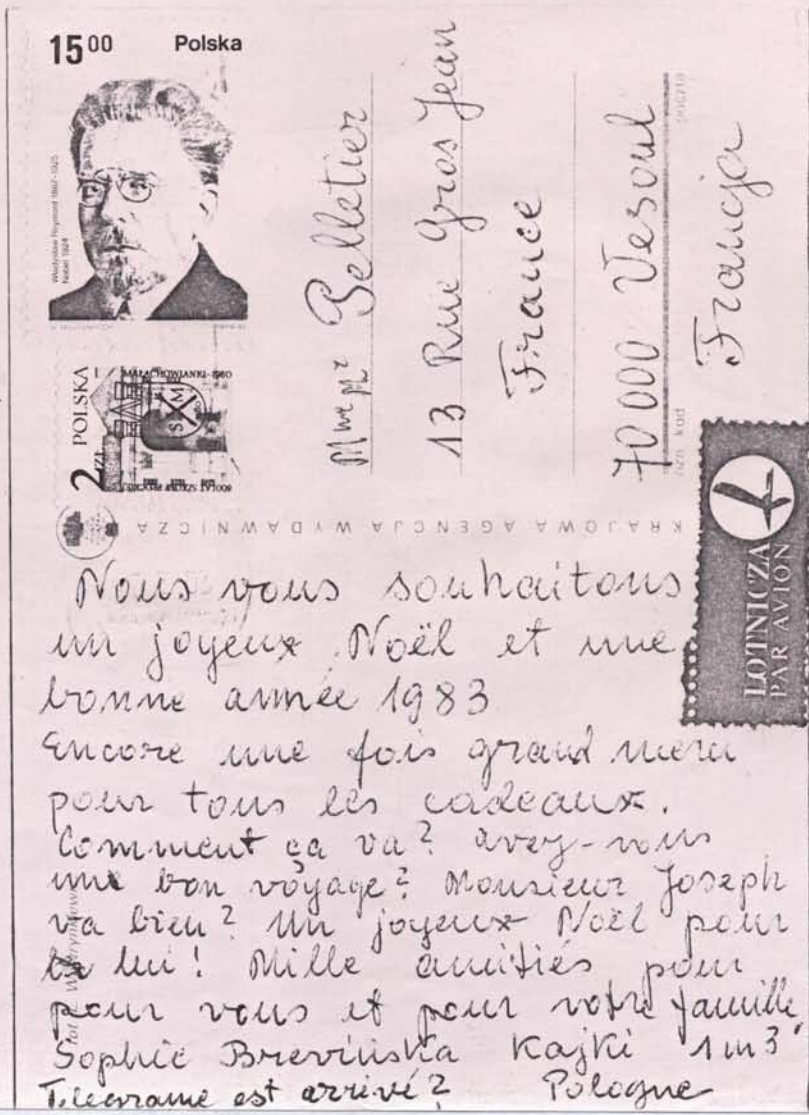 15⁰⁰ Polska
Władysław Reymont 1867-1925
Nobel 1924
2 ZŁ POLSKA
800 LAT SZKOŁY PŁOCKIEJ
KRAJOWA AGENCJA WYDAWNICZA
Pelletier
13 Rue Gros Jean
France
70 000 Vesoul
Francja
poczta
ozn. kod
LOTNICZA
PAR AVION
Nous vous souhaitons
un joyeux Noël et une
bonne année 1983
Encore une fois grand merci
pour tous les cadeaux.
Comment ça va? avez-vous
une bon voyage? Monsieur Joseph
va bien? Un joyeux Noël pour
lui! Mille amitiés pour
pour vous et pour votre famille,
Sophie Kajki 1 m 3
est arrivé? Pologne